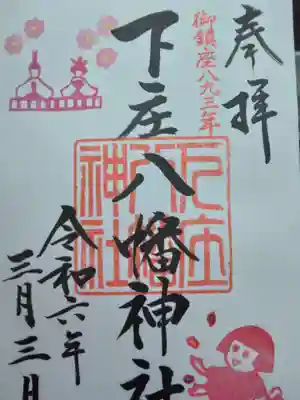 奉拝
御鎮座八九三年
下庄八幡神社
下庄八幡神社
令和六年
三月三日